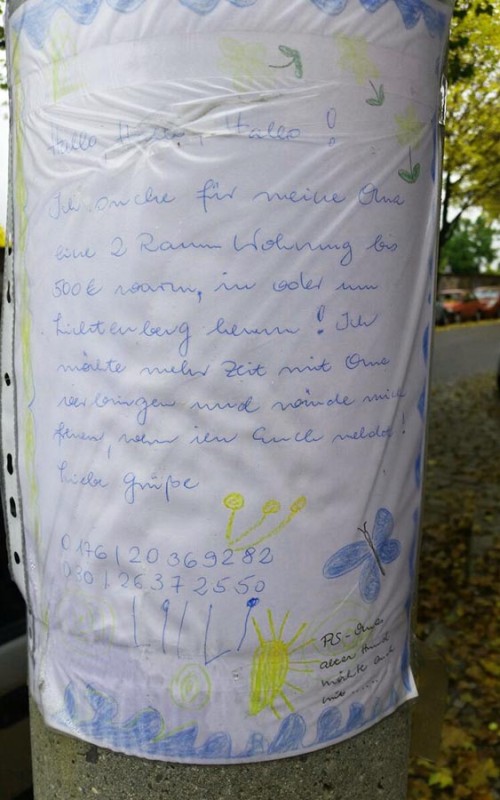 Hallo, Hallo, Hallo!
Ich suche für meine Oma
eine 2 Raum Wohnung bis
500€ warm, in oder um
Lichtenberg herum! Ich
möhte mehr Zeit mit Oma
verbringen und würde mich
freuen, wenn ihr Euch meldet!
Liebe Grüße
0176/20369282
030/26372550
LILI
PS - Oma
alter Hund
möhte auch
mit